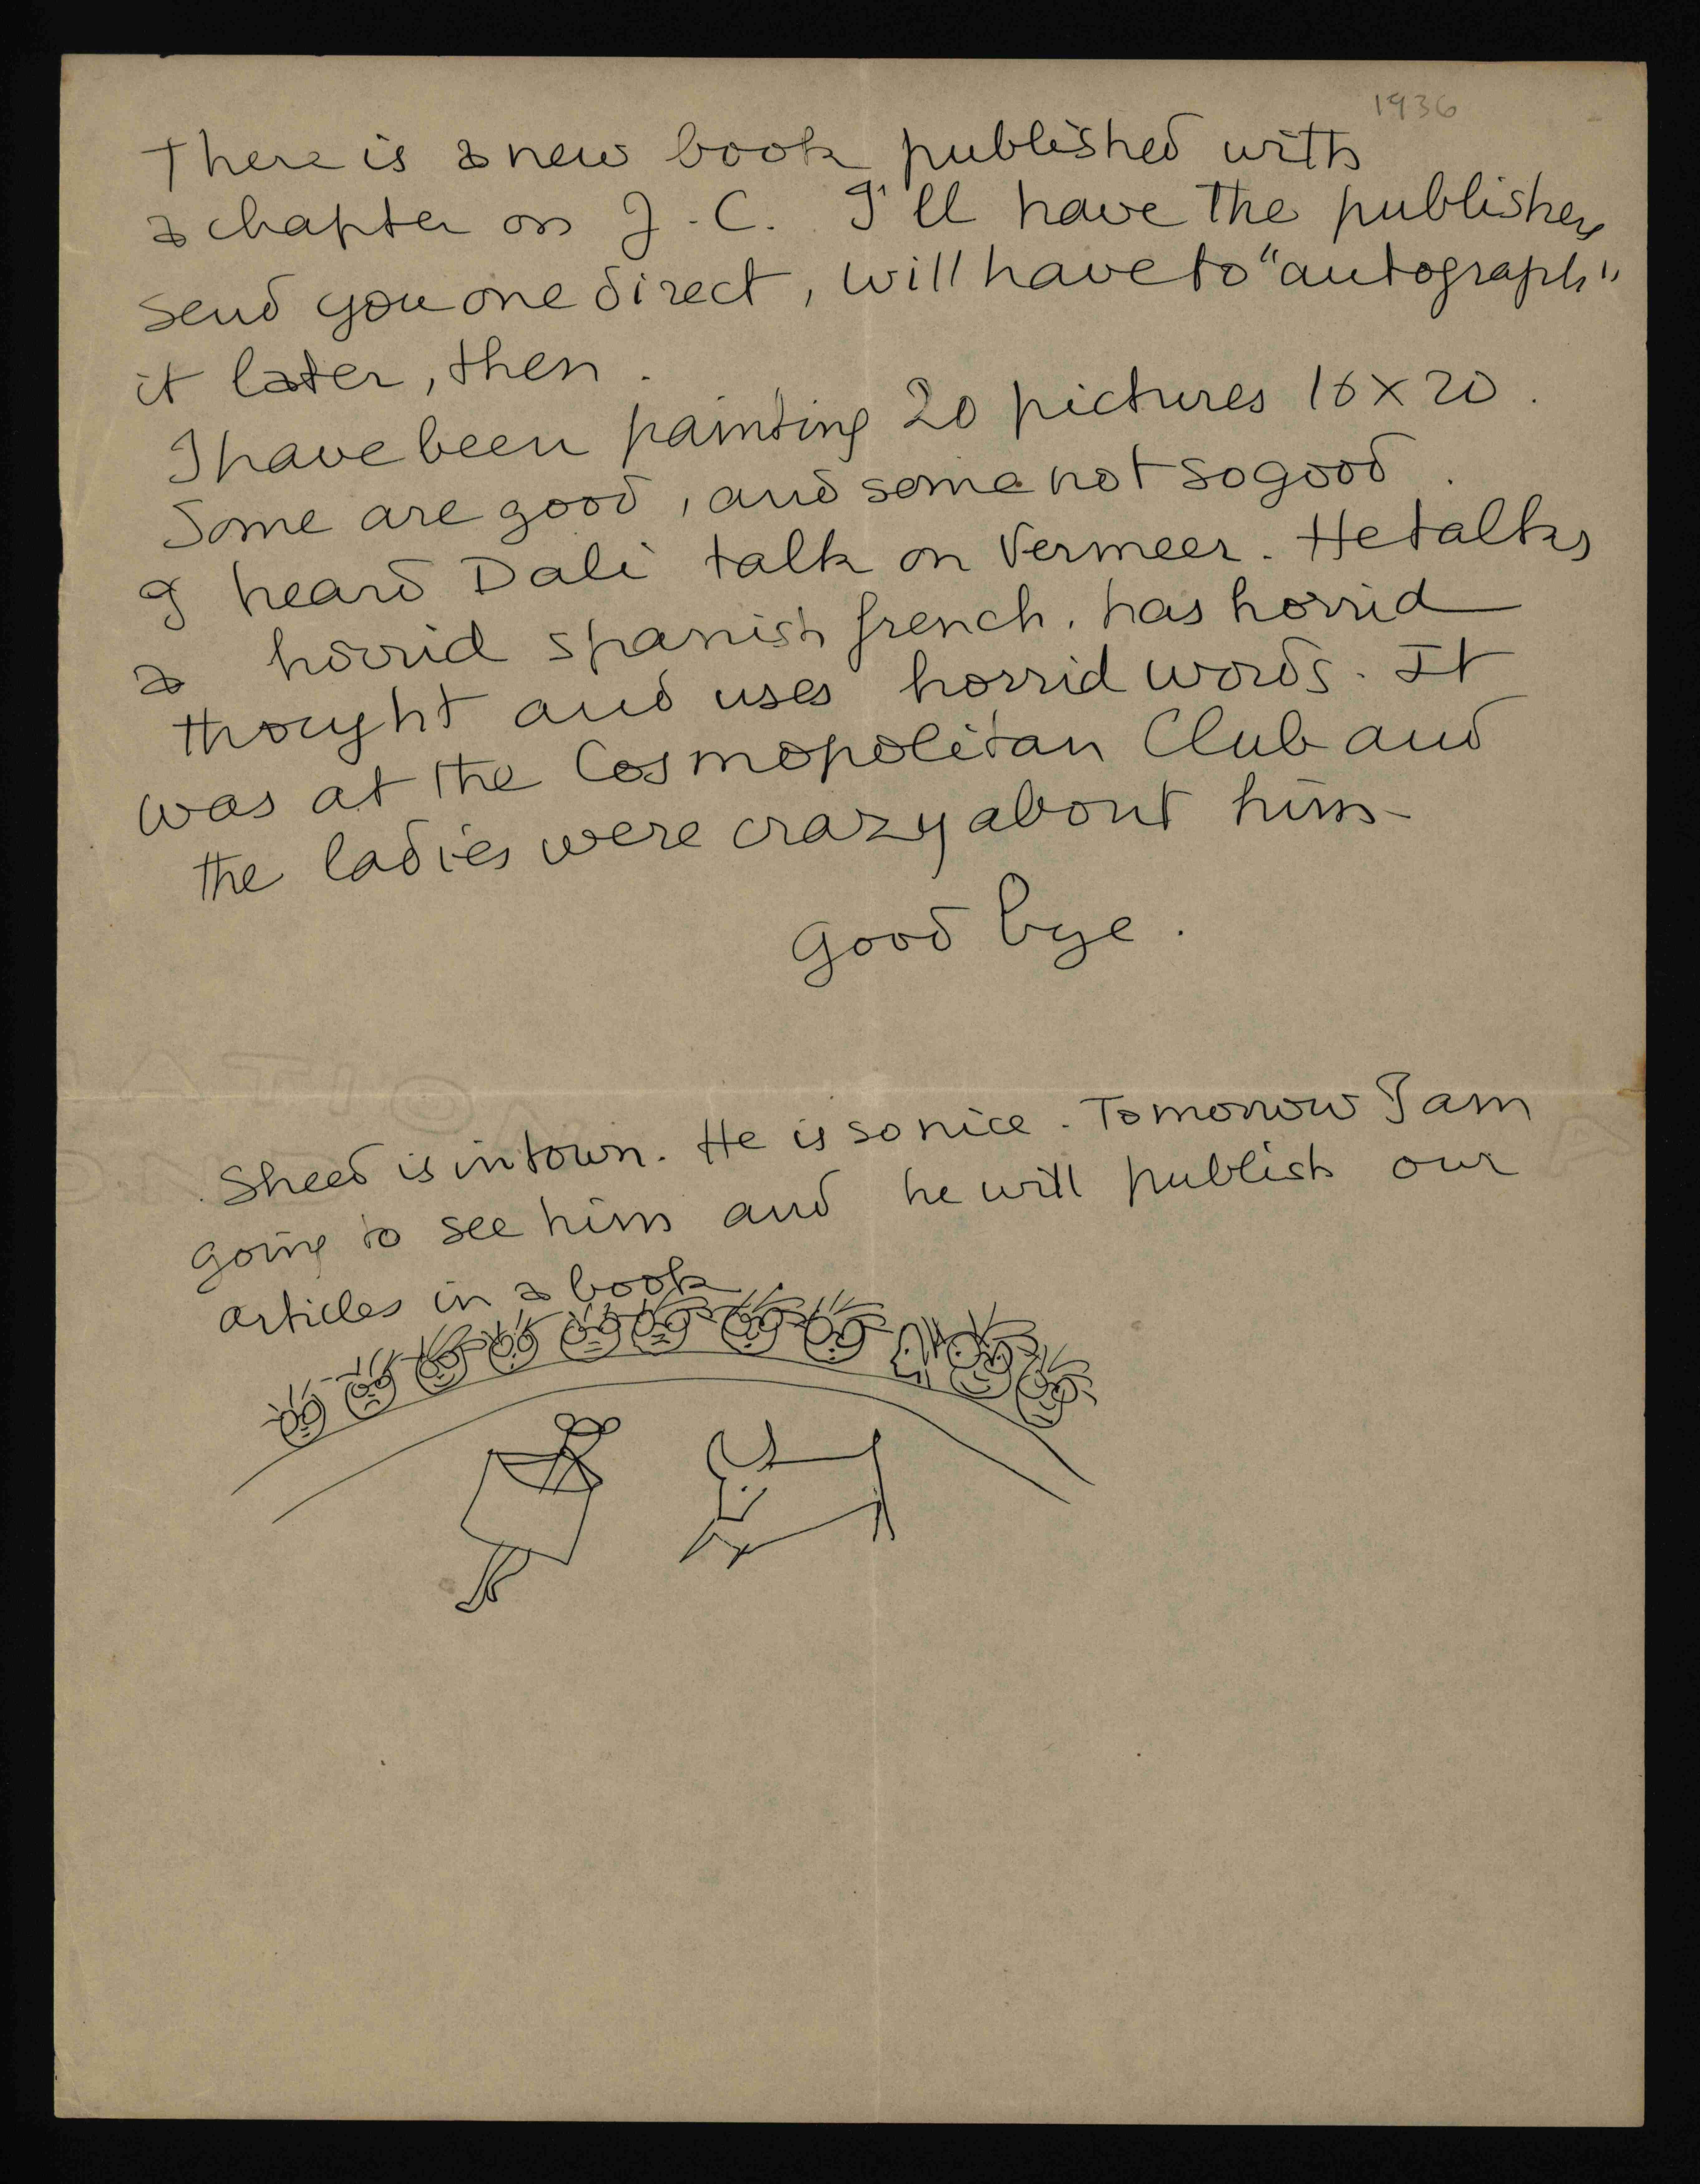 1936
There is a new book published with
a chapter on J.C. I'll have the publishers
send you one direct, will have to "autograph"
it later, then.
I have been painting 20 pictures 16x20.
Some are good, and some not so good.
I heard Dali talk on Vermeer. He talks
a horrid spanish french, has horrid
thought and uses horrid words. It
was at the Cosmopolitan Club and
the ladies were crazy about him-
Good bye.
Sheed is in town. He is so nice. Tomorrow I am
going to see him and he will publish our
articles in a book.